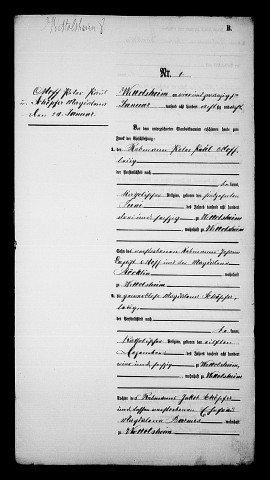 Wittolsheim 8
B.
Nr. 1
Stoff Peter Paul
u. Schöpfer Magdalena
den 24. Januar.
Wittolsheim am vierundzwanzigsten
Januar tausend acht hundert
Vor dem unterzeichneten Standesbeamten erschienen heute zum
Zweck der Eheschließung:
1. der Ackermann Peter Paul Stoff,
ledig
der Persönlichkeit nach
be kannt,
katholischer Religion, geboren den
des Jahres tausend acht hundert
zu Wittolsheim
, wohnhaft zu Wittolsheim
Sohn des verstorbenen Ackermanns Johann
Baptist Stoff und der Magdalena
Böcklin wohnhaft
zu Wittolsheim
2. die gewerblose Magdalena Schöpfer,
ledig,
der Persönlichkeit nach
be kannt,
katholischer Religion, geboren den
des Jahres tausend acht hundert
zu Wittolsheim,
wohnhaft zu Wittolsheim
Tochter des Ackermanns Jakob Schöpfer
und dessen verstorbenen Ehefrau
Magdalena wohnhaft
zu Wittolsheim